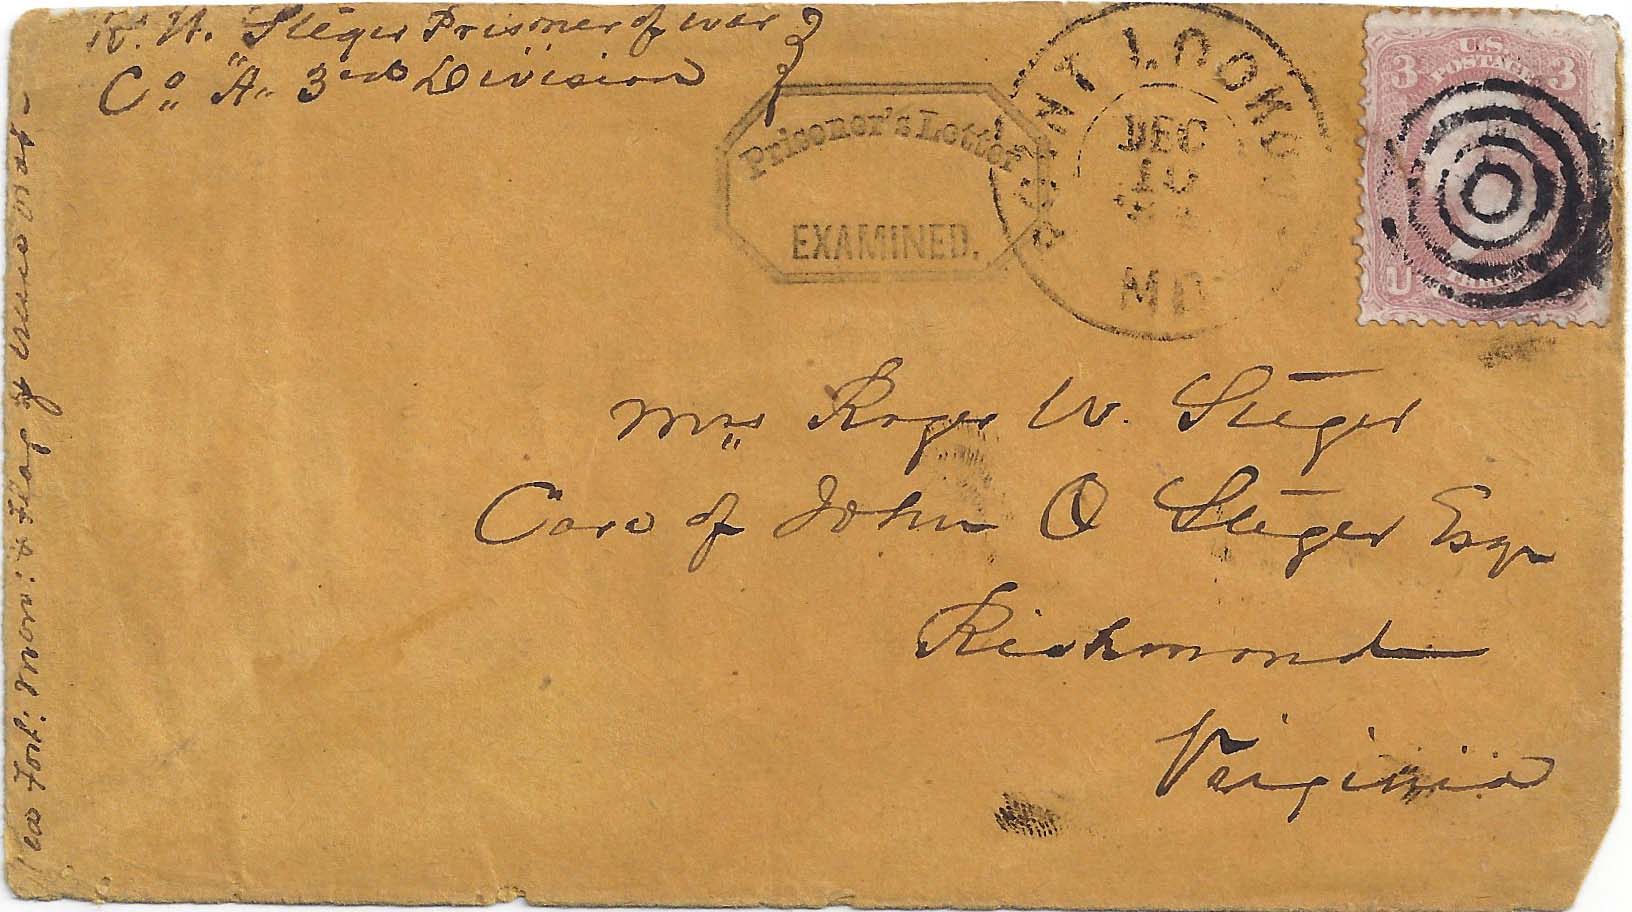 R. W. Steger Prisoner of war
Co "A" 3rd Division
Prisoner's Letter
EXAMINED.
POINT LOOKOUT
DEC
10
MD
U.S.
POSTAGE
3 3
U
Mrs Roger W. Steger
Care of John O Steger Esqr
Richmond
Virginia
via Fort: Mon: & Flag of truce boat -